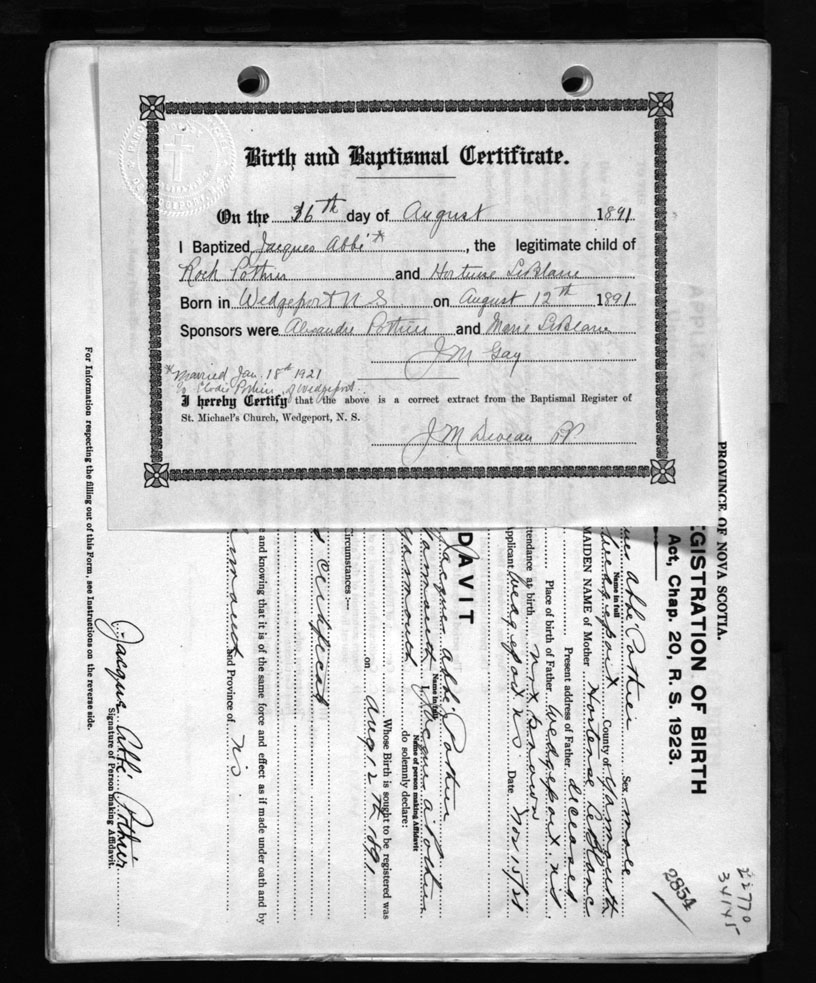 Birth and Baptismal Certificate.
On the 16th day of August 1891
I Baptized Jacques Abbé*, the legitimate child of
Rock Pothier and Hortense LeBlanc
Born in Wedgeport N S on August 12th 1891
Sponsors were Alexandre Pothier and Marie LeBlanc
J M Gay
*Married Jan. 18th 1921
to Elodie Pothier of Wedgeport.
I hereby Certify that the above is a correct extract from the Baptismal Register of
St. Michael's Church, Wedgeport, N. S.
J M Deveau PP
PROVINCE OF NOVA SCOTIA.
EGISTRATION OF BIRTH
Act, Chap. 20, R. S. 1923.
22770
34145
2854
ues Abbé Pothier Sex male
Name in full
Wedgeport County of Yarmouth
MAIDEN NAME of Mother Hortense LeBlanc
Present address of Father deceased
Place of birth of Father Wedgeport NS
ttendance at birth not known
Applicant Wedgeport NS Date Nov 15/21
DAVIT
Jacques Abbé Pothier
Name in full
Yarmouth I, Jacques A Pothier
Name of person making Affidavit
Yarmouth do solemnly declare:
Whose Birth is sought to be registered was
on Aug 12th 1891
Circumstances :—
s certificate
e and knowing that it is of the same force and effect as if made under oath and by
and Province of NS
Jacques Abbé Pothier
Signature of Person making Affidavit.
For Information respecting the filling out of this Form, see Instructions on the reverse side.